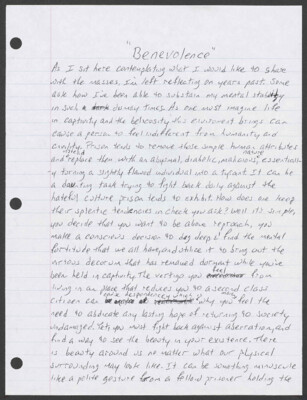 "Benevolence"
As I sit here contemplating what I would like to share
with the masses, I'm left reflecting on years past. Some
ask how I've been able to substain my mental stability
in such dismay times. As one must imagine life
in captivity and the belicosity this enviroment brings can
cause a person to feel indifferent from humanity and
civility. Prison tends to remove those simple human attributes
and replace them with an abysmal, diabolic, malicious nature, essentially
turning a slightly flawed individual into a tyrant. It can be
a daunting task trying to fight back daily against the
hateful culture prison tends to exhibit. How does one keep
their splenetic tendencies in check you ask? Well it's simple,
you decide that you want to be above reproach, you
make a conscious decision to dig deep & find the mental
fortitude that we all have, and utilize it to bring out the
decorum that has remained dormant while you've
been held in captivity. The vertigo you feel from
living in an place that reduces you to a second class
citizen can why you feel the
need to abdicate any lasting hope of returning to society
undamaged. Yet, you must fight back against aberration, and
find a way to see the beauty in your existence. There
is beauty around us no matter what our physical
surrounding may look like. It can be something minuscule
like a polite gesture from a fellow prisoner holding the